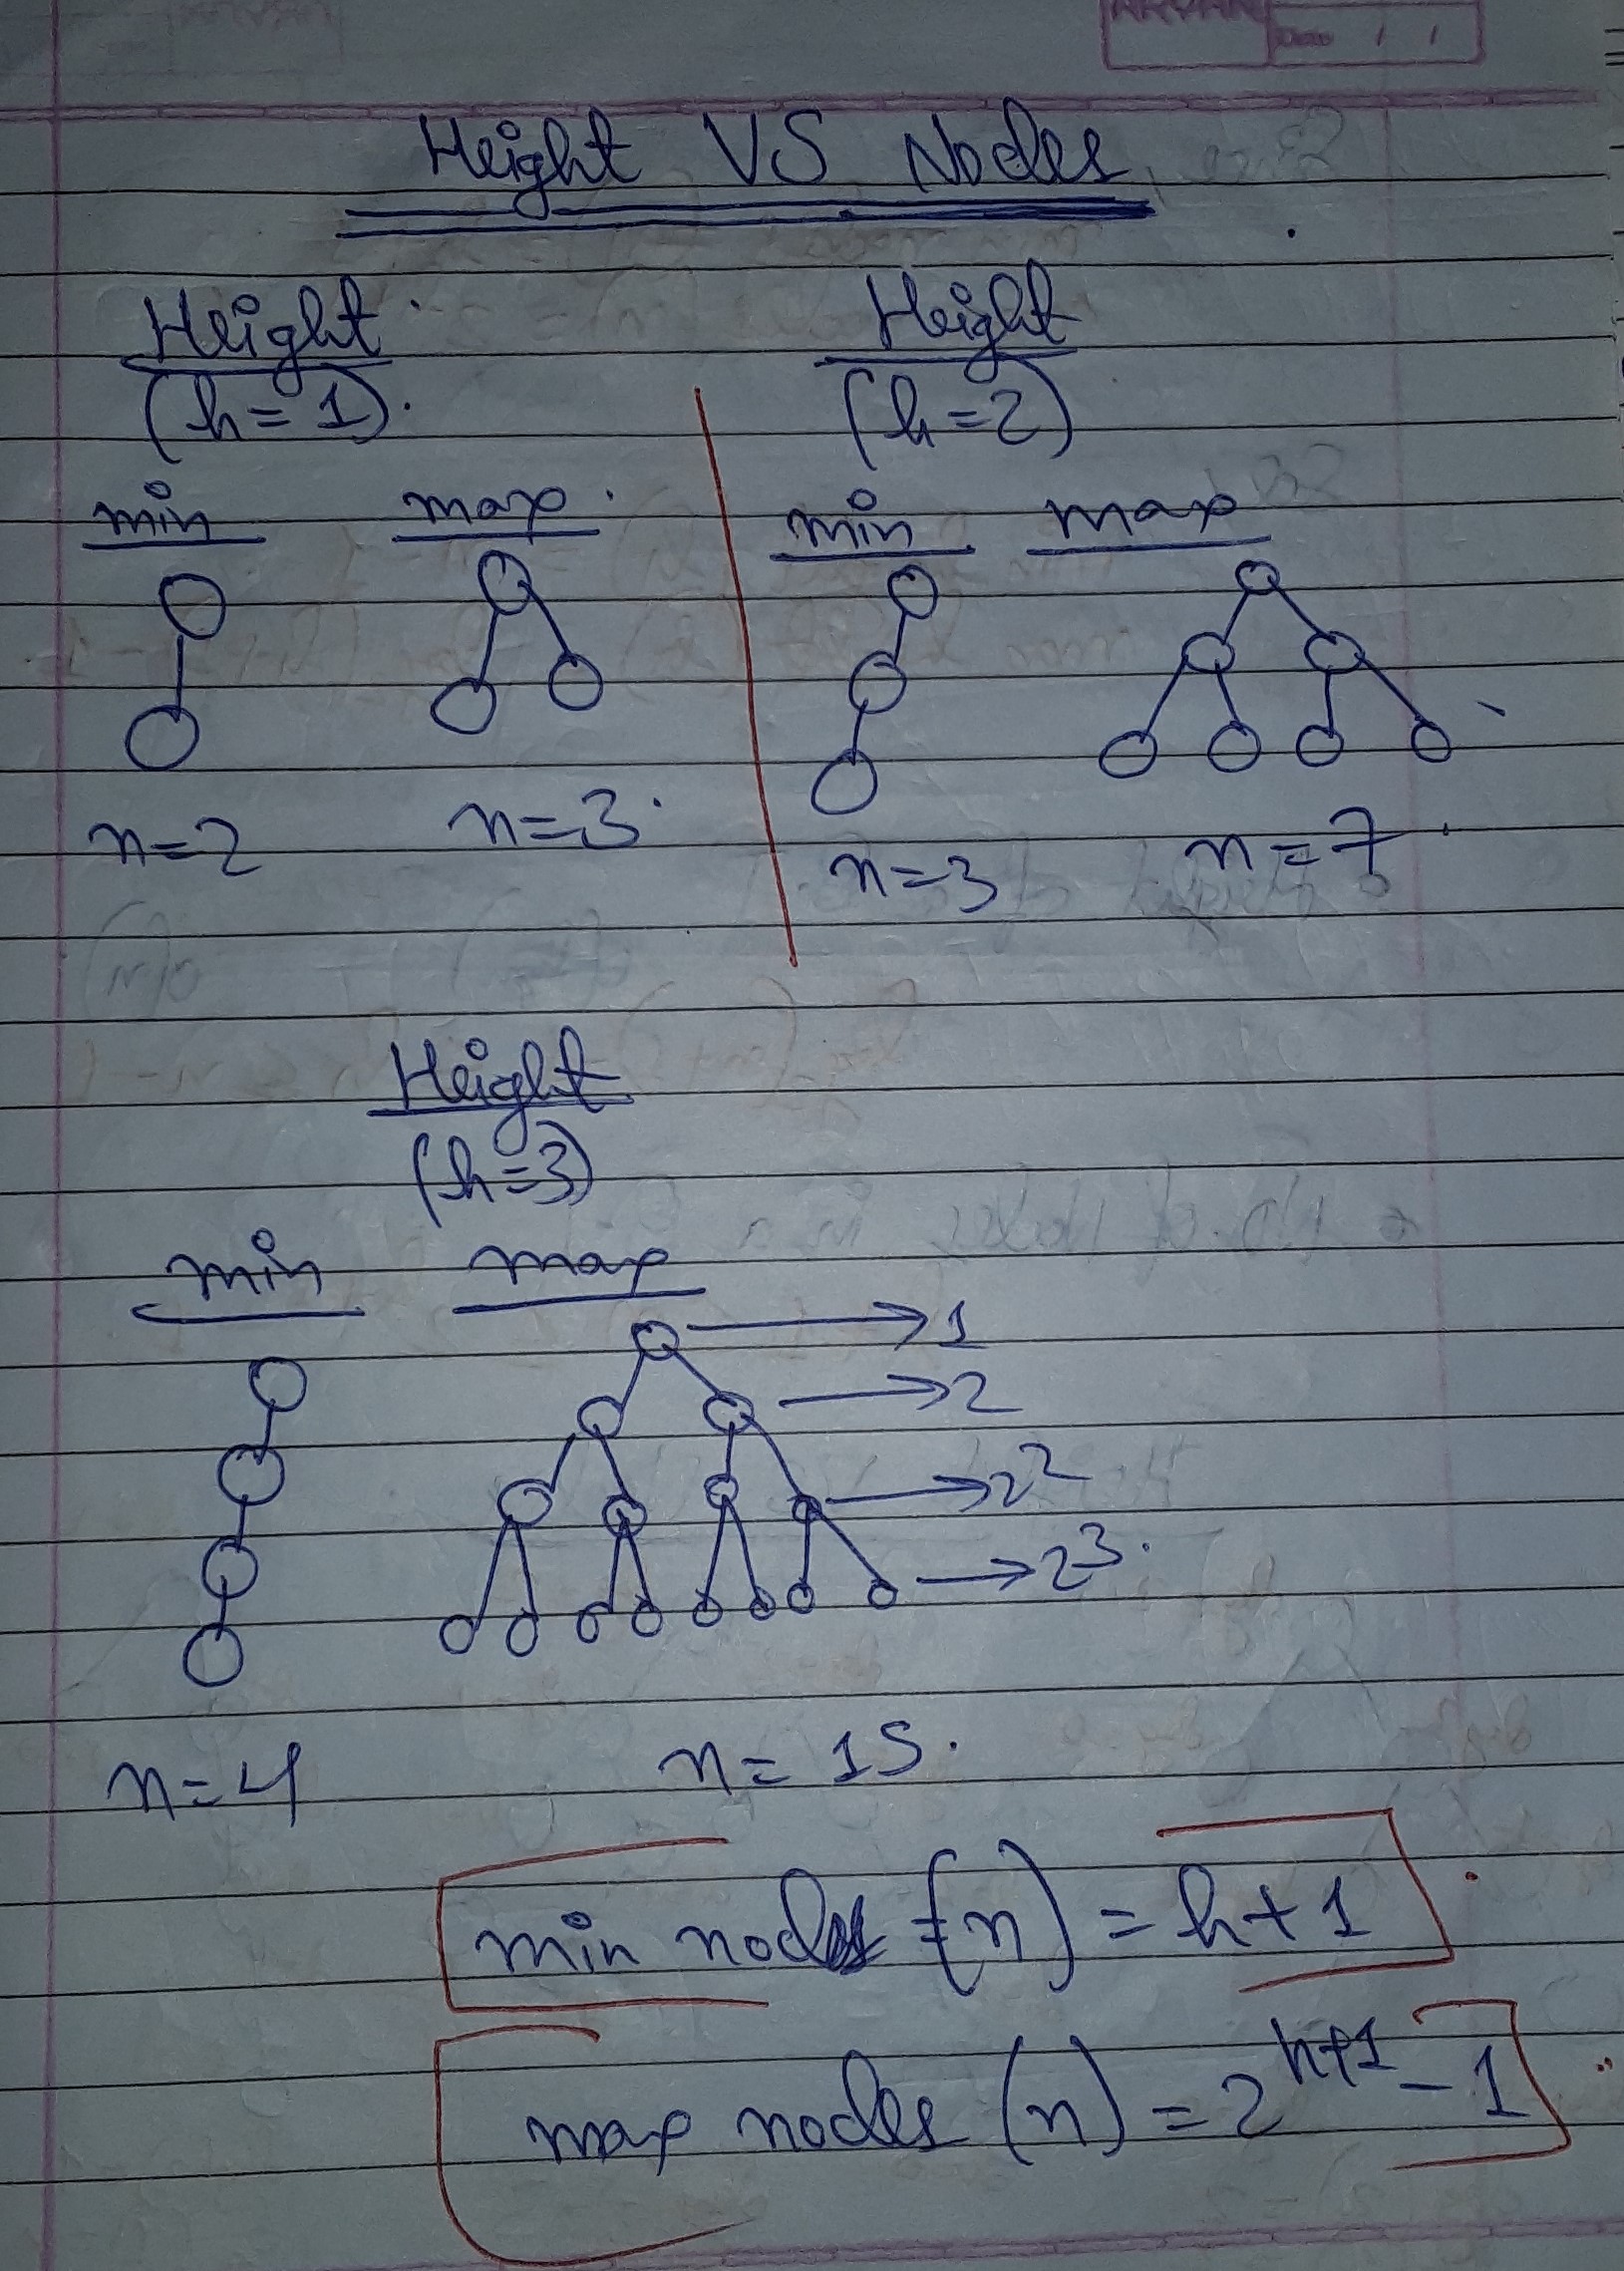 ARYAN
Date / /
Height VS Nodes
Height
(h=1).
min max.
n=2 n=3.
Height
(h=2)
min max
n=3 n=7
Height
(h=3)
min max
→1
→2
→2²
→2³.
n=4 n=15.
min nodes (n) = h+1
max nodes (n) = 2^{h+1} - 1